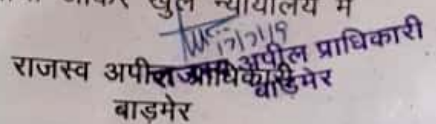 खुले न्यायालय में
राजस्व अपील प्राधिकारी
बाड़मेर
राजस्व अपील प्राधिकारी
बाड़मेर